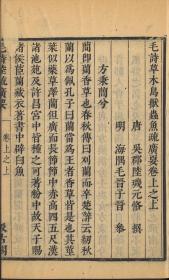 毛詩草木鳥獸蟲魚疏廣要卷上之上
唐 吳郡陸璣元恪 撰
明 海隅毛晉子晉 參
方秉蕑兮
蕑即蘭香草也春秋傳曰刈蘭而卒楚辭云紉秋
蘭以爲佩孔子曰蘭當爲王者香草皆是也其莖
葉似藥草澤蘭但廣而長節節中赤高四五尺漢
諸池苑及許昌宮中皆種之可著粉中故天子賜
諸侯茝蘭藏衣著書中辟白魚
毛詩陸疏廣要
卷上之上
汲古閣